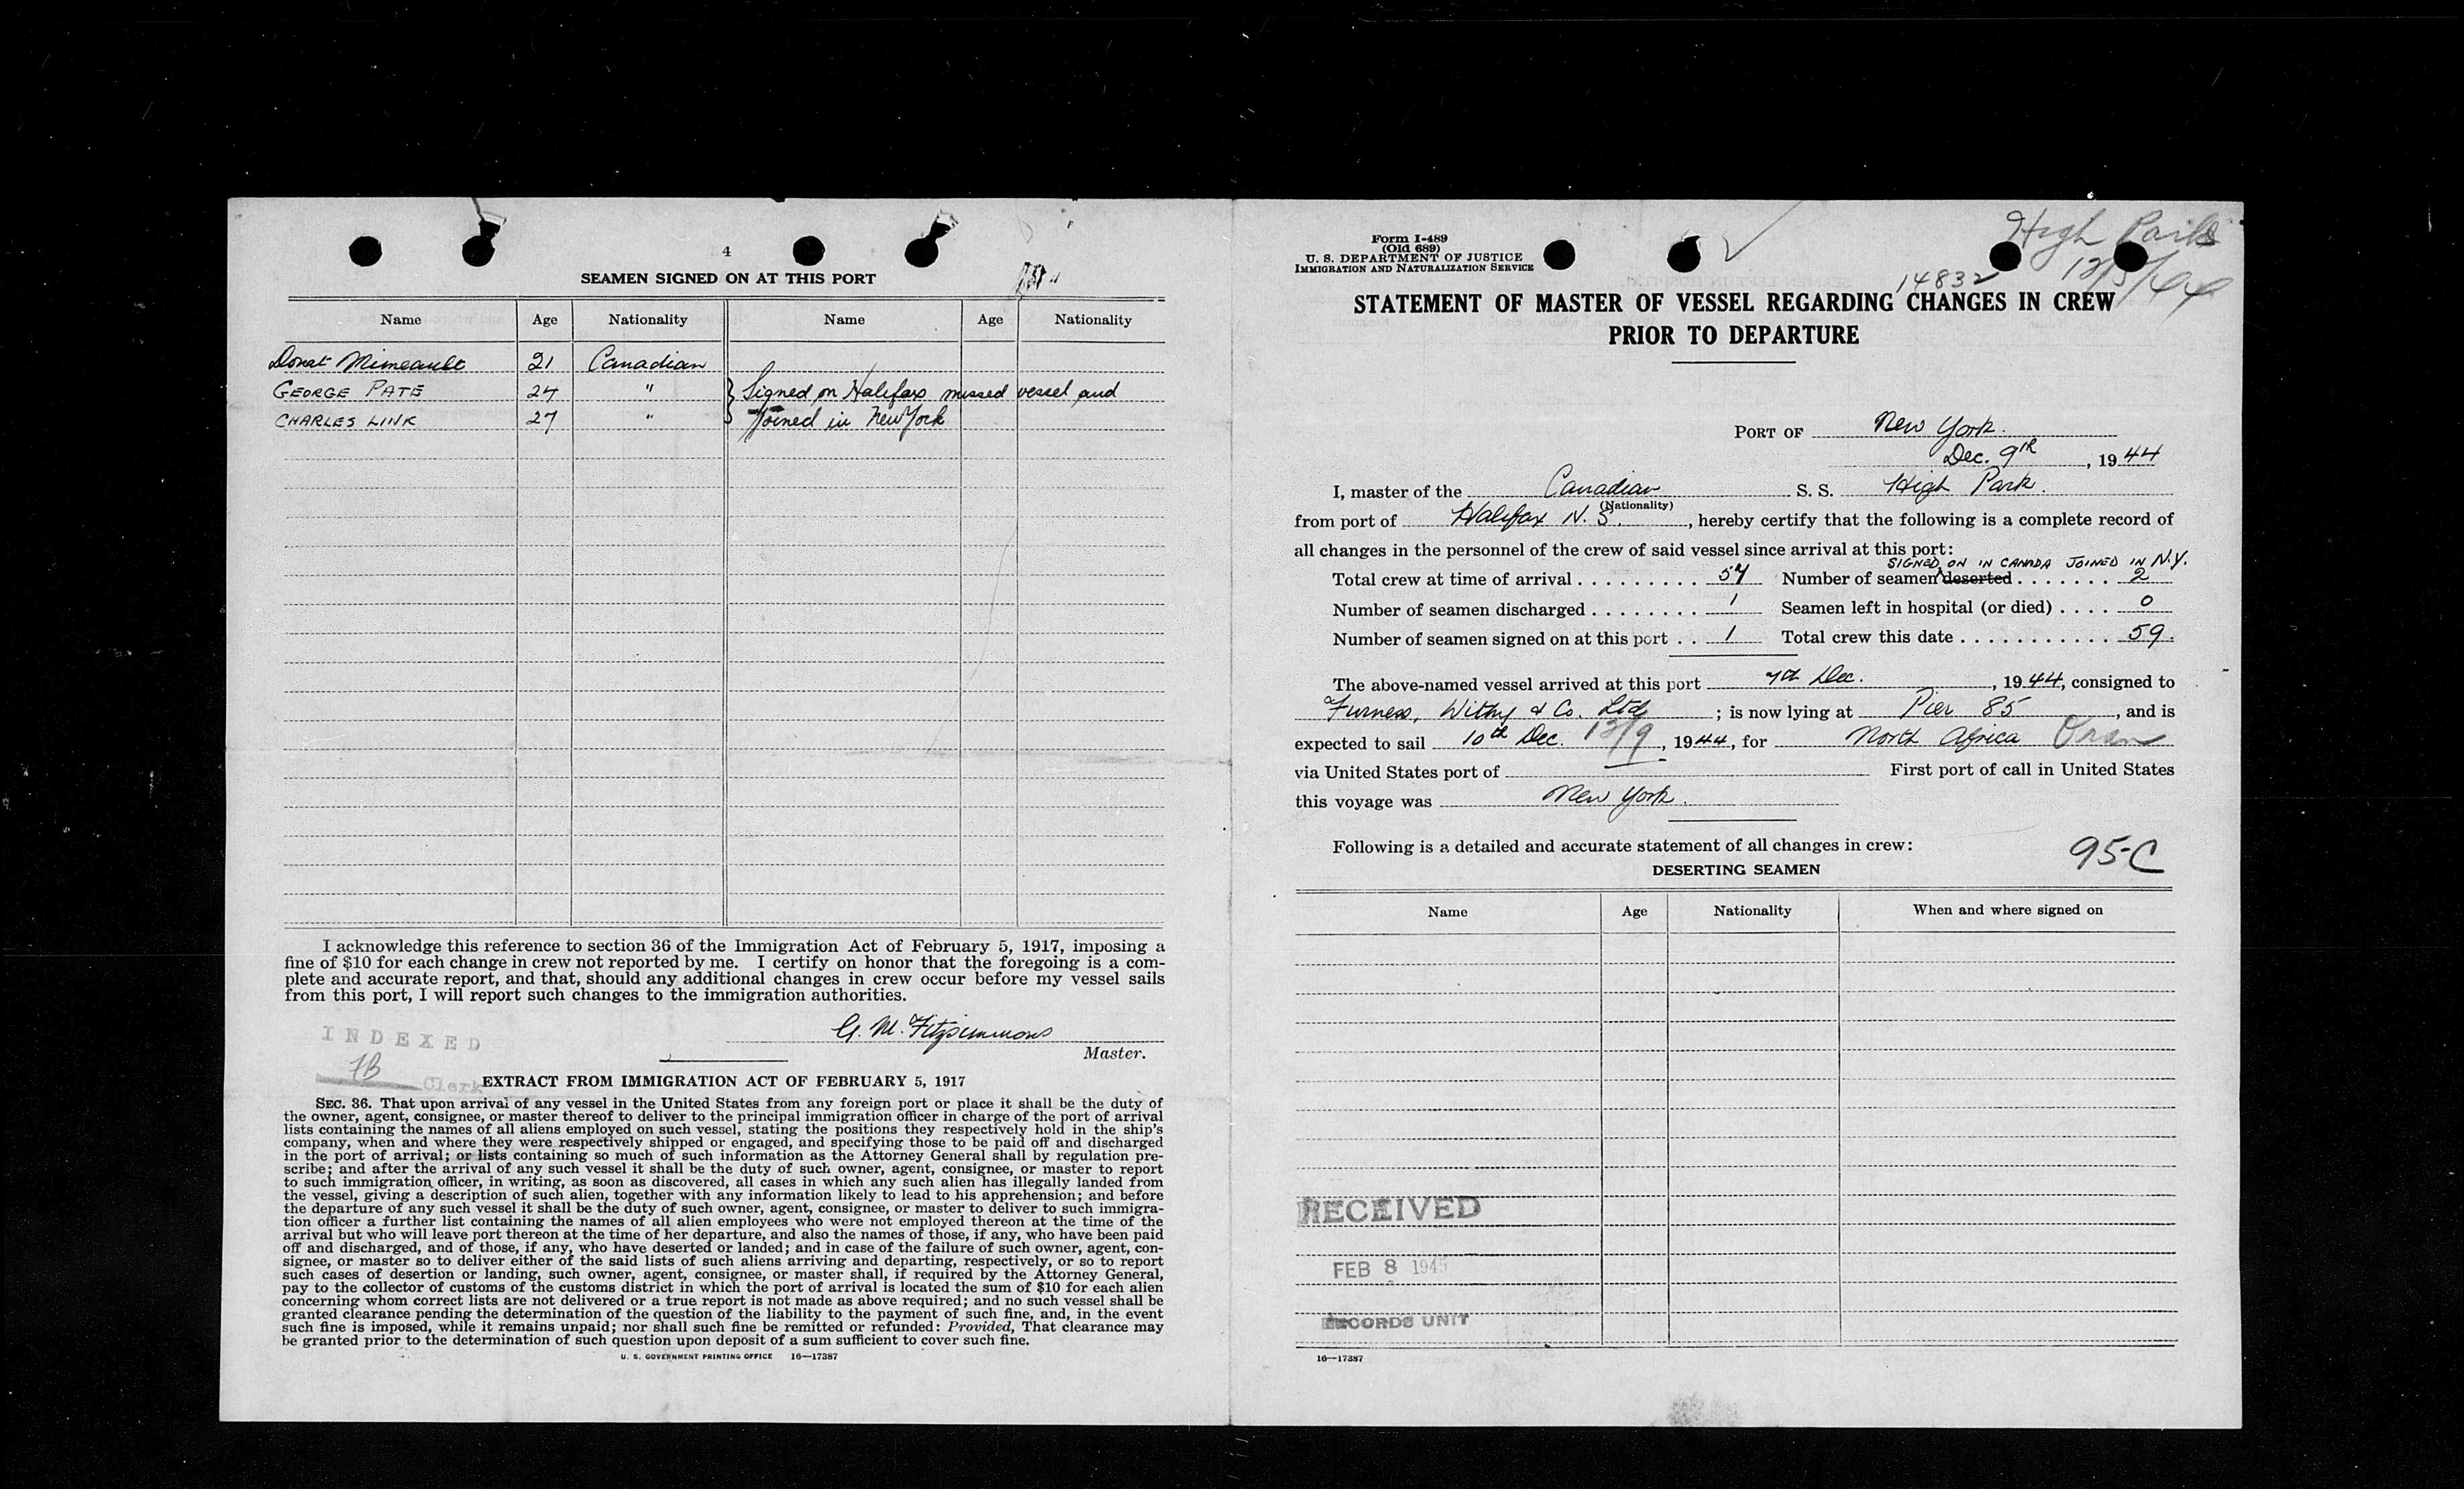 4
SEAMEN SIGNED ON AT THIS PORT
Name Age Nationality Name Age Nationality
Donat Mimeault 21 Canadian
GEORGE PATE 24 " } Signed on Halifax missed vessel and
CHARLES LINK 27 " } joined in New York
I acknowledge this reference to section 36 of the Immigration Act of February 5, 1917, imposing a
fine of $10 for each change in crew not reported by me. I certify on honor that the foregoing is a com-
plete and accurate report, and that, should any additional changes in crew occur before my vessel sails
from this port, I will report such changes to the immigration authorities.
G. M. Fitzsimmons
Master.
INDEXED
Clerk
EXTRACT FROM IMMIGRATION ACT OF FEBRUARY 5, 1917
SEC. 36. That upon arrival of any vessel in the United States from any foreign port or place it shall be the duty of
the owner, agent, consignee, or master thereof to deliver to the principal immigration officer in charge of the port of arrival
lists containing the names of all aliens employed on such vessel, stating the positions they respectively hold in the ship's
company, when and where they were respectively shipped or engaged, and specifying those to be paid off and discharged
in the port of arrival; or lists containing so much of such information as the Attorney General shall by regulation pre-
scribe; and after the arrival of any such vessel it shall be the duty of such owner, agent, consignee, or master to report
to such immigration officer, in writing, as soon as discovered, all cases in which any such alien has illegally landed from
the vessel, giving a description of such alien, together with any information likely to lead to his apprehension; and before
the departure of any such vessel it shall be the duty of such owner, agent, consignee, or master to deliver to such immigra-
tion officer a further list containing the names of all alien employees who were not employed thereon at the time of the
arrival but who will leave port thereon at the time of her departure, and also the names of those, if any, who have been paid
off and discharged, and of those, if any, who have deserted or landed; and in case of the failure of such owner, agent, con-
signee, or master so to deliver either of the said lists of such aliens arriving and departing, respectively, or so to report
such cases of desertion or landing, such owner, agent, consignee, or master shall, if required by the Attorney General,
pay to the collector of customs of the customs district in which the port of arrival is located the sum of $10 for each alien
concerning whom correct lists are not delivered or a true report is not made as above required; and no such vessel shall be
granted clearance pending the determination of the question of the liability to the payment of such fine, and, in the event
such fine is imposed, while it remains unpaid; nor shall such fine be remitted or refunded: Provided, That clearance may
be granted prior to the determination of such question upon deposit of a sum sufficient to cover such fine.
U. S. GOVERNMENT PRINTING OFFICE 16—17387
Form I-489
(Old 689)
U. S. DEPARTMENT OF JUSTICE
IMMIGRATION AND NATURALIZATION SERVICE
High Park
14832
STATEMENT OF MASTER OF VESSEL REGARDING CHANGES IN CREW
PRIOR TO DEPARTURE
PORT OF New York.
Dec. 9th, 1944
I, master of the Canadian S. S. High Park.
(Nationality)
from port of Halifax N. S., hereby certify that the following is a complete record of
all changes in the personnel of the crew of said vessel since arrival at this port:
SIGNED ON IN CANADA JOINED IN N.Y.
Total crew at time of arrival . . . . . . . . . . 57 Number of seamen deserted . . . . . . . 2
Number of seamen discharged . . . . . . . . 1 Seamen left in hospital (or died) . . . . 0
Number of seamen signed on at this port . . 1 Total crew this date . . . . . . . . . . . . 59.
The above-named vessel arrived at this port 7th Dec., 1944, consigned to
Furness, Withy & Co. Ltd; is now lying at Pier 85, and is
expected to sail 10th Dec. 12/9, 1944, for North Africa Oran
via United States port of First port of call in United States
this voyage was New York.
Following is a detailed and accurate statement of all changes in crew:
95-C
DESERTING SEAMEN
Name Age Nationality When and where signed on
RECEIVED
FEB 8 1945
RECORDS UNIT
16—17387